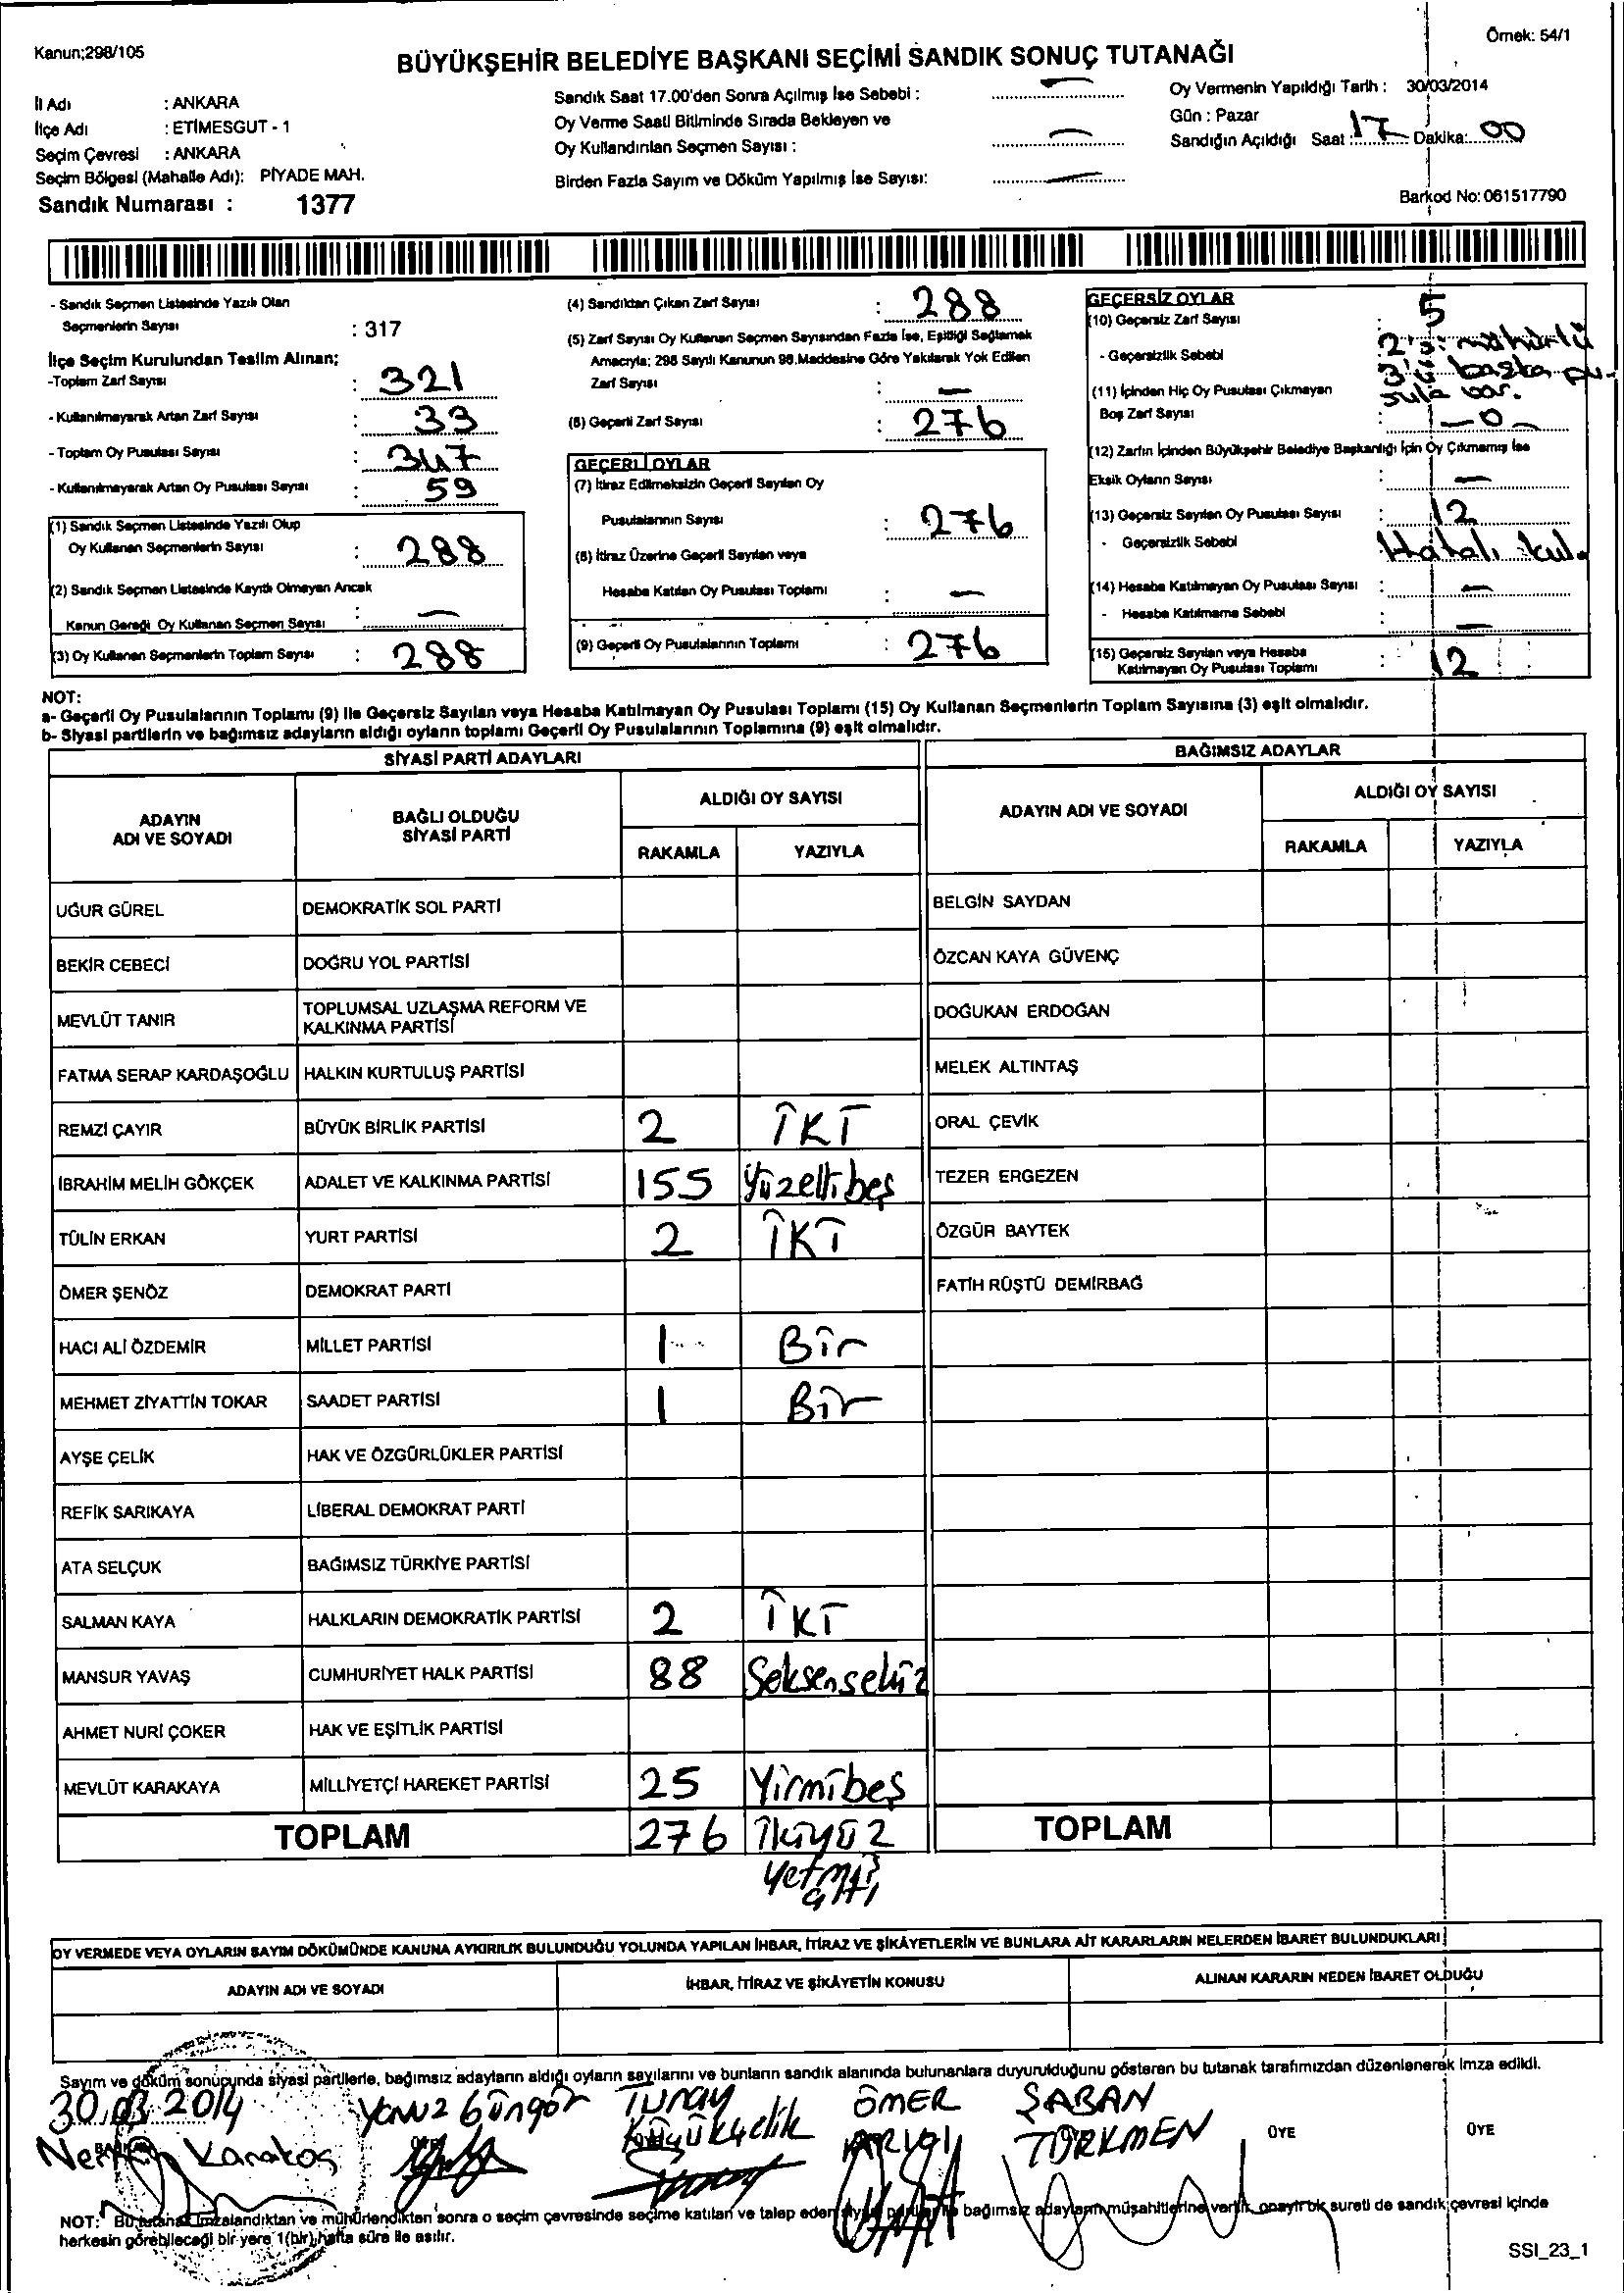 Kanun;298/105
Örnek: 54/1
BÜYÜKŞEHİR BELEDİYE BAŞKANI SEÇİMİ SANDIK SONUÇ TUTANAĞI
İl Adı : ANKARA
İlçe Adı : ETİMESGUT - 1
Seçim Çevresi : ANKARA
Seçim Bölgesi (Mahalle Adı): PİYADE MAH.
Sandık Numarası : 1377
Sandık Saat 17.00'den Sonra Açılmış İse Sebebi : —
Oy Verme Saati Bitiminde Sırada Bekleyen ve
Oy Kullandırılan Seçmen Sayısı : —
Birden Fazla Sayım ve Döküm Yapılmış İse Sayısı: —
Oy Vermenin Yapıldığı Tarih : 30/03/2014
Gün : Pazar
Sandığın Açıldığı Saat : 17 Dakika: 00
Barkod No: 061517790
- Sandık Seçmen Listesinde Yazılı Olan
Seçmenlerin Sayısı : 317
İlçe Seçim Kurulundan Teslim Alınan;
-Toplam Zarf Sayısı : 321
- Kullanılmayarak Artan Zarf Sayısı : 33
- Toplam Oy Pusulası Sayısı : 347
- Kullanılmayarak Artan Oy Pusulası Sayısı : 59
(1) Sandık Seçmen Listesinde Yazılı Olup
Oy Kullanan Seçmenlerin Sayısı : 288
(2) Sandık Seçmen Listesinde Kayıtlı Olmayan Ancak
Kanun Gereği Oy Kullanan Seçmen Sayısı : —
(3) Oy Kullanan Seçmenlerin Toplam Sayısı : 288
(4) Sandıktan Çıkan Zarf Sayısı : 288
(5) Zarf Sayısı Oy Kullanan Seçmen Sayısından Fazla İse, Eşitliği Sağlamak
Amacıyla; 298 Sayılı Kanunun 98.Maddesine Göre Yakılarak Yok Edilen
Zarf Sayısı : —
(6) Geçerli Zarf Sayısı : 276
GEÇERLİ OYLAR
(7) İtiraz Edilmeksizin Geçerli Sayılan Oy
Pusulalarının Sayısı : 276
(8) İtiraz Üzerine Geçerli Sayılan veya
Hesaba Katılan Oy Pusulası Toplamı : —
(9) Geçerli Oy Pusulalarının Toplamı : 276
GEÇERSİZ OYLAR
(10) Geçersiz Zarf Sayısı : 5
- Geçersizlik Sebebi : 2'si mühürlü
3'ü başka pu-
sula var.
(11) İçinden Hiç Oy Pusulası Çıkmayan
Boş Zarf Sayısı : -0-
(12) Zarfın İçinden Büyükşehir Belediye Başkanlığı İçin Oy Çıkmamış İse
Eksik Oyların Sayısı : —
(13) Geçersiz Sayılan Oy Pusulası Sayısı : 12
- Geçersizlik Sebebi Hatalı kul.
(14) Hesaba Katılmayan Oy Pusulası Sayısı : —
- Hesaba Katılmama Sebebi : —
(15) Geçersiz Sayılan veya Hesaba
Katılmayan Oy Pusulası Toplamı : 12
NOT:
a- Geçerli Oy Pusulalarının Toplamı (9) ile Geçersiz Sayılan veya Hesaba Katılmayan Oy Pusulası Toplamı (15) Oy Kullanan Seçmenlerin Toplam Sayısına (3) eşit olmalıdır.
b- Siyasi partilerin ve bağımsız adayların aldığı oyların toplamı Geçerli Oy Pusulalarının Toplamına (9) eşit olmalıdır.
SİYASİ PARTİ ADAYLARI
BAĞIMSIZ ADAYLAR
ADAYIN
ADI VE SOYADI
BAĞLI OLDUĞU
SİYASİ PARTİ
ALDIĞI OY SAYISI
RAKAMLA YAZIYLA
ADAYIN ADI VE SOYADI
ALDIĞI OY SAYISI
RAKAMLA YAZIYLA
UĞUR GÜREL DEMOKRATİK SOL PARTİ BELGİN SAYDAN
BEKİR CEBECİ DOĞRU YOL PARTİSİ ÖZCAN KAYA GÜVENÇ
MEVLÜT TANIR TOPLUMSAL UZLAŞMA REFORM VE
KALKINMA PARTİSİ DOĞUKAN ERDOĞAN
FATMA SERAP KARDAŞOĞLU HALKIN KURTULUŞ PARTİSİ MELEK ALTINTAŞ
REMZİ ÇAYIR BÜYÜK BİRLİK PARTİSİ 2 İKİ ORAL ÇEVİK
İBRAHİM MELİH GÖKÇEK ADALET VE KALKINMA PARTİSİ 155 Yüzellibeş TEZER ERGEZEN
TÜLİN ERKAN YURT PARTİSİ 2 İKİ ÖZGÜR BAYTEK
ÖMER ŞENÖZ DEMOKRAT PARTİ FATİH RÜŞTÜ DEMİRBAĞ
HACI ALİ ÖZDEMİR MİLLET PARTİSİ 1 Bir
MEHMET ZİYATTİN TOKAR SAADET PARTİSİ 1 Bir
AYŞE ÇELİK HAK VE ÖZGÜRLÜKLER PARTİSİ
REFİK SARIKAYA LİBERAL DEMOKRAT PARTİ
ATA SELÇUK BAĞIMSIZ TÜRKİYE PARTİSİ
SALMAN KAYA HALKLARIN DEMOKRATİK PARTİSİ 2 İKİ
MANSUR YAVAŞ CUMHURİYET HALK PARTİSİ 88 Seksensekiz
AHMET NURİ ÇOKER HAK VE EŞİTLİK PARTİSİ
MEVLÜT KARAKAYA MİLLİYETÇİ HAREKET PARTİSİ 25 Yirmibeş
TOPLAM 276 İkiyüz TOPLAM
yetmiş
altı
OY VERMEDE VEYA OYLARIN SAYIM DÖKÜMÜNDE KANUNA AYKIRILIK BULUNDUĞU YOLUNDA YAPILAN İHBAR, İTİRAZ VE ŞİKÂYETLERİN VE BUNLARA AİT KARARLARIN NELERDEN İBARET BULUNDUKLARI
ADAYIN ADI VE SOYADI İHBAR, İTİRAZ VE ŞİKÂYETİN KONUSU ALINAN KARARIN NEDEN İBARET OLDUĞU
Sayım ve döküm sonucunda siyasi partilerle, bağımsız adayların aldığı oyların sayılarını ve bunların sandık alanında bulunanlara duyurulduğunu gösteren bu tutanak tarafımızdan düzenlenerek imza edildi.
30.03.2014 Yavuz Güngör Turay ÖMER ŞABAN
Karakoş Küçükçelik TÜRKMEN ÜYE ÜYE
NOT: Bu tutanak imzalandıktan ve mühürlendikten sonra o seçim çevresinde seçime katılan ve talep eden siyasi partilerle bağımsız adayların müşahitlerine verilir, onaylı bir sureti de sandık çevresi içinde
herkesin görebileceği bir yere 1(bir) hafta süre ile asılır.
SSI_23_1